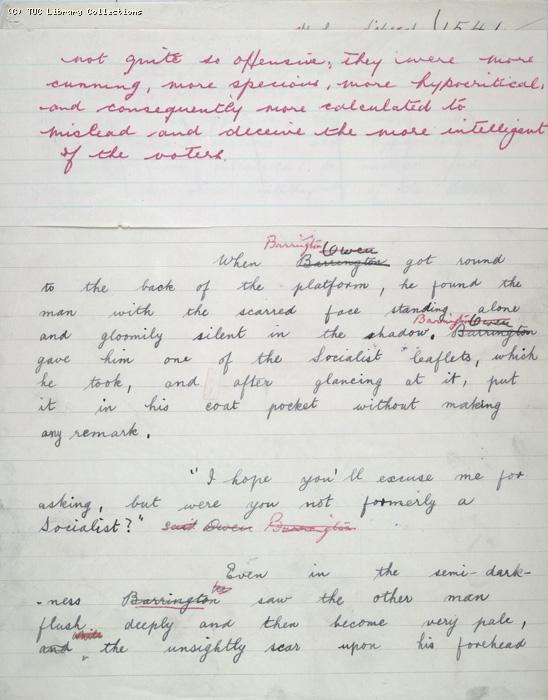 (C) TUC Library Collections
1541
not quite so offensive; they were more
cunning, more specious, more hypocritical,
and consequently more calculated to
mislead and deceive the more intelligent
of the voters.
Barrington Owen
When Barrington got round
to the back of the platform, he found the
man with the scarred face standing alone
Barrington Owen
and gloomily silent in the shadow. Barrington
gave him one of the Socialist leaflets, which
he took, and after glancing at it, put
it in his coat pocket without making
any remark.
"I hope you'll excuse me for
asking, but were you not formerly a
Socialist?" said Owen Barrington
Even in the semi-dark-
-ness Barrington saw the other man
flush deeply and then become very pale,
while
and the unsightly scar upon his forehead